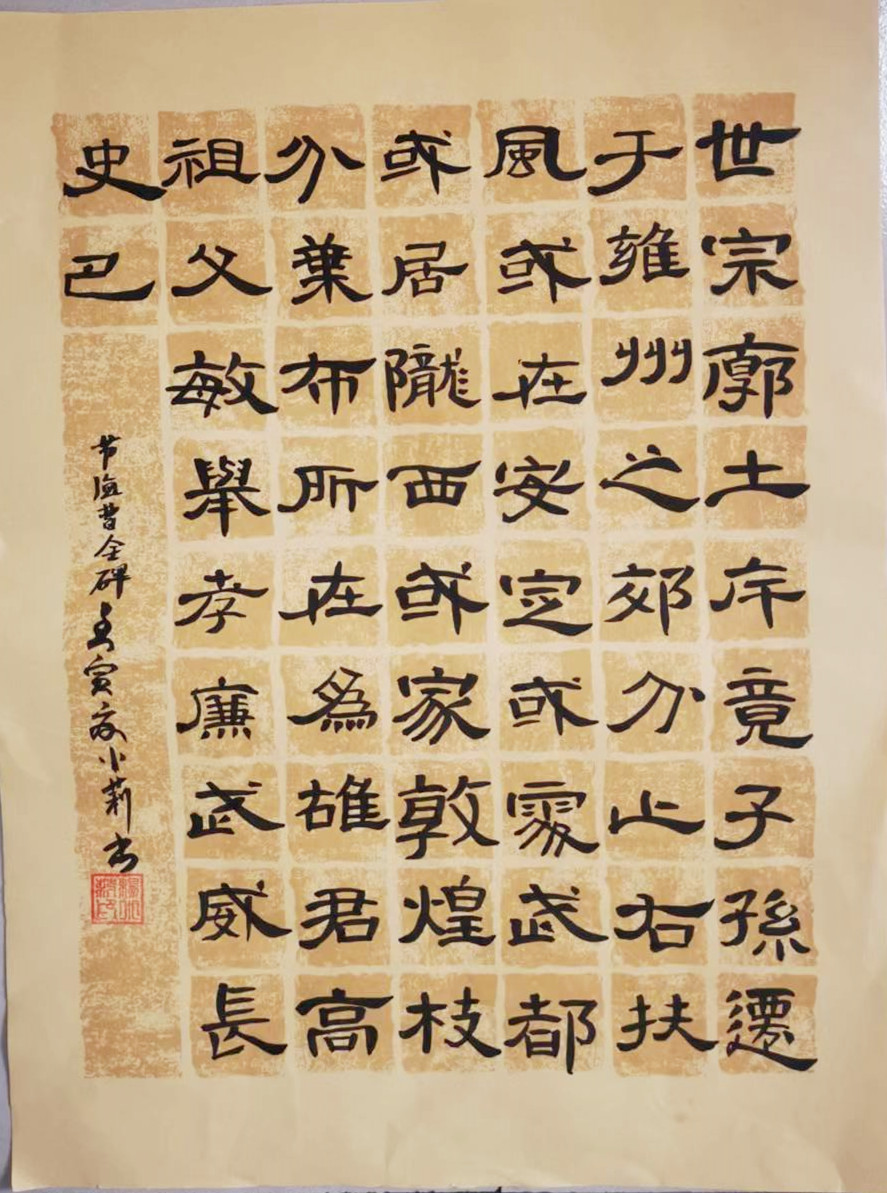 世宗廓土斥竟子孫遷
于雍州之郊分止右扶
風或在安定或處武都
或居隴西或家敦煌枝
分葉布所在為雄君高
祖父敏舉孝廉武威長
史巴
节临曹全碑壬寅夜小莉书